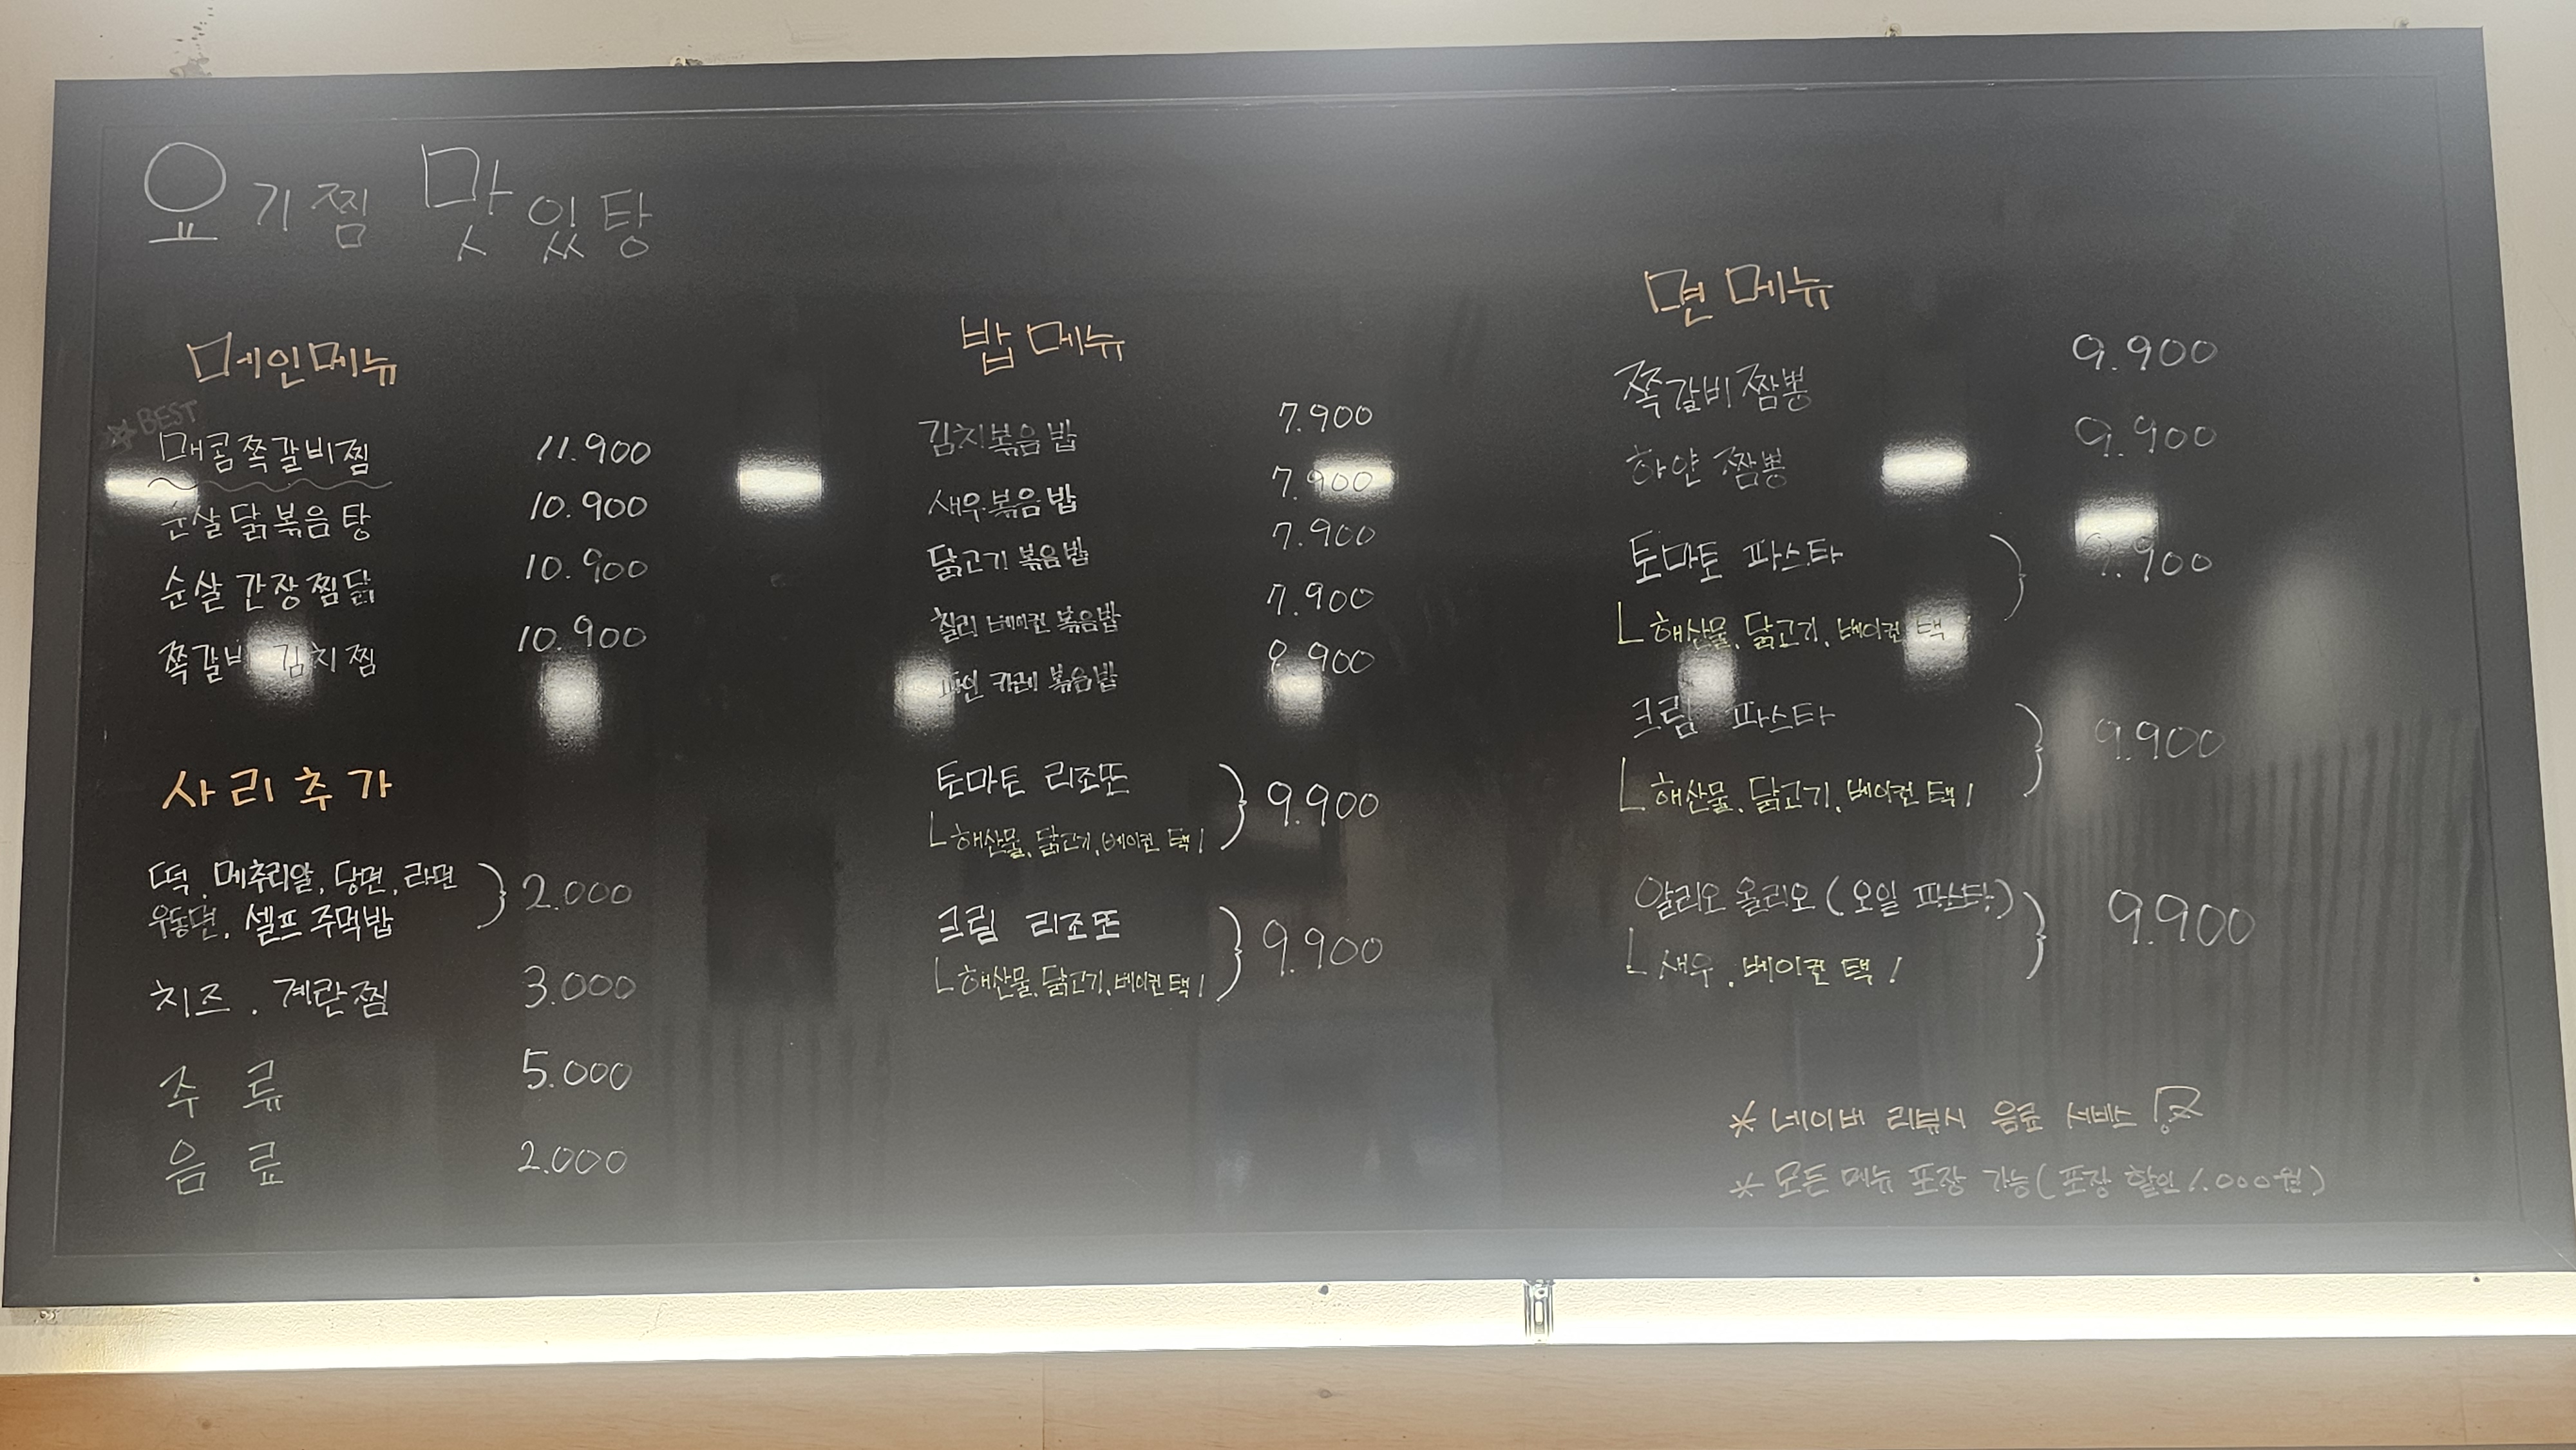 요기찜 맛있탕
메인메뉴
BEST
매콤쪽갈비찜 11.900
순살닭볶음탕 10.900
순살 간장찜닭 10.900
쪽갈비 김치찜 10.900
사리추가
떡, 메추리알, 당면, 라면
우동면, 셀프 주먹밥 } 2.000
치즈, 계란찜 3.000
주류 5.000
음료 2.000
밥 메뉴
김치볶음밥 7.900
새우볶음밥 7.900
닭고기 볶음밥 7.900
칠리 베이컨 볶음밥 7.900
파인 카레 볶음밥 8.900
토마토 리조또 } 9.900
└ 해산물, 닭고기, 베이컨 택!
크림 리조또 } 9.900
└ 해산물, 닭고기, 베이컨 택!
면 메뉴
쪽갈비 짬뽕 9.900
하얀 짬뽕 9.900
토마토 파스타 } 9.900
└ 해산물, 닭고기, 베이컨 택!
크림 파스타 } 9.900
└ 해산물, 닭고기, 베이컨 택!
알리오 올리오 (오일 파스타) } 9.900
└ 새우, 베이컨 택!
* 네이버 리뷰시 음료 서비스!
* 모든 메뉴 포장 가능 (포장 할인 1.000원)